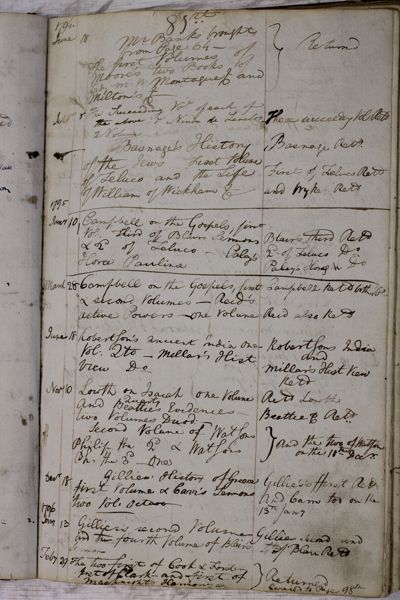 85
1794
June 18 Mr Banks brought
from Page 64 —
The first Volumes of
Moore's two Books of
Montague & and
Milton's &
Returned
The Succeeding Vol of each of
the above & Ninon de
2 Volum
The succeeding Vol Retd
Basnage's History
of the Jews first Volume
of and the Life
of William of Wickham &
Basnage Retd
First of Retd
and Wyke. Retd
1795
10 Campbell on the Gospels, first
Vol. – third of Blairs Sermons
& 2d of – Paley's
Horæ Paulinæ
Blairs third Retd
2d of Do
Paley's Do
March 28 Campbell on the Gospels, first
& second Volumes — Reid's
active Powers — one Volume
Campbell Retd both
Reid also Retd
June 18 Robertson's ancient India one
Vol. 4to – Millar's Hist
View Do
Robertsons India
and
Millars Hist View
Retd
Novr 10 Louth on Isaiah one Volume
and Beattie's Evidences
two Volumes Duod
Retd Louth
Beattie & Retd
Second Volume of Watsons
Philip the 2d & Watsons
Ph. the 3d One
And the two of Watson
on the 18th Decr
Decr 18 Gillies History of Greece
first Volume & Carrs Sermons
two Vols Octavo
Gillies's first Retd
And Carrs too on the
13th Jany
1796
Jany 13 Gillies's second Volume
and the fourth Volume of Blairs
Sermons
Gillies second and
4th of Blair Retd
Feby 29 The two first of Cook &
first of Clark and first of
Macknight Harmony
Returned
Carried to Page 98th